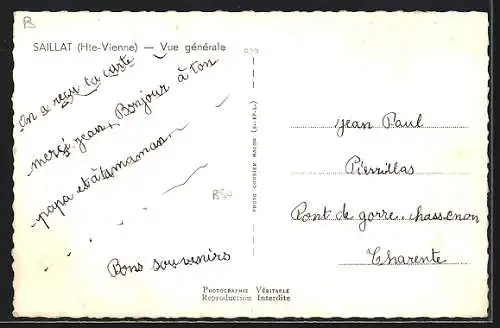 B
SAILLAT (Hte-Vienne) — Vue générale
on a reçu ta carte
mersi jean, Bonjour à ton
papa et à ta maman
Bons souvenirs
B50
PHOTO COMBIER MACON (S.-&-L.)
Jean Paul
Pierrillas
Pont de gorre. chassenon
Charente
PHOTOGRAPHIE VÉRITABLE
Reproduction Interdite